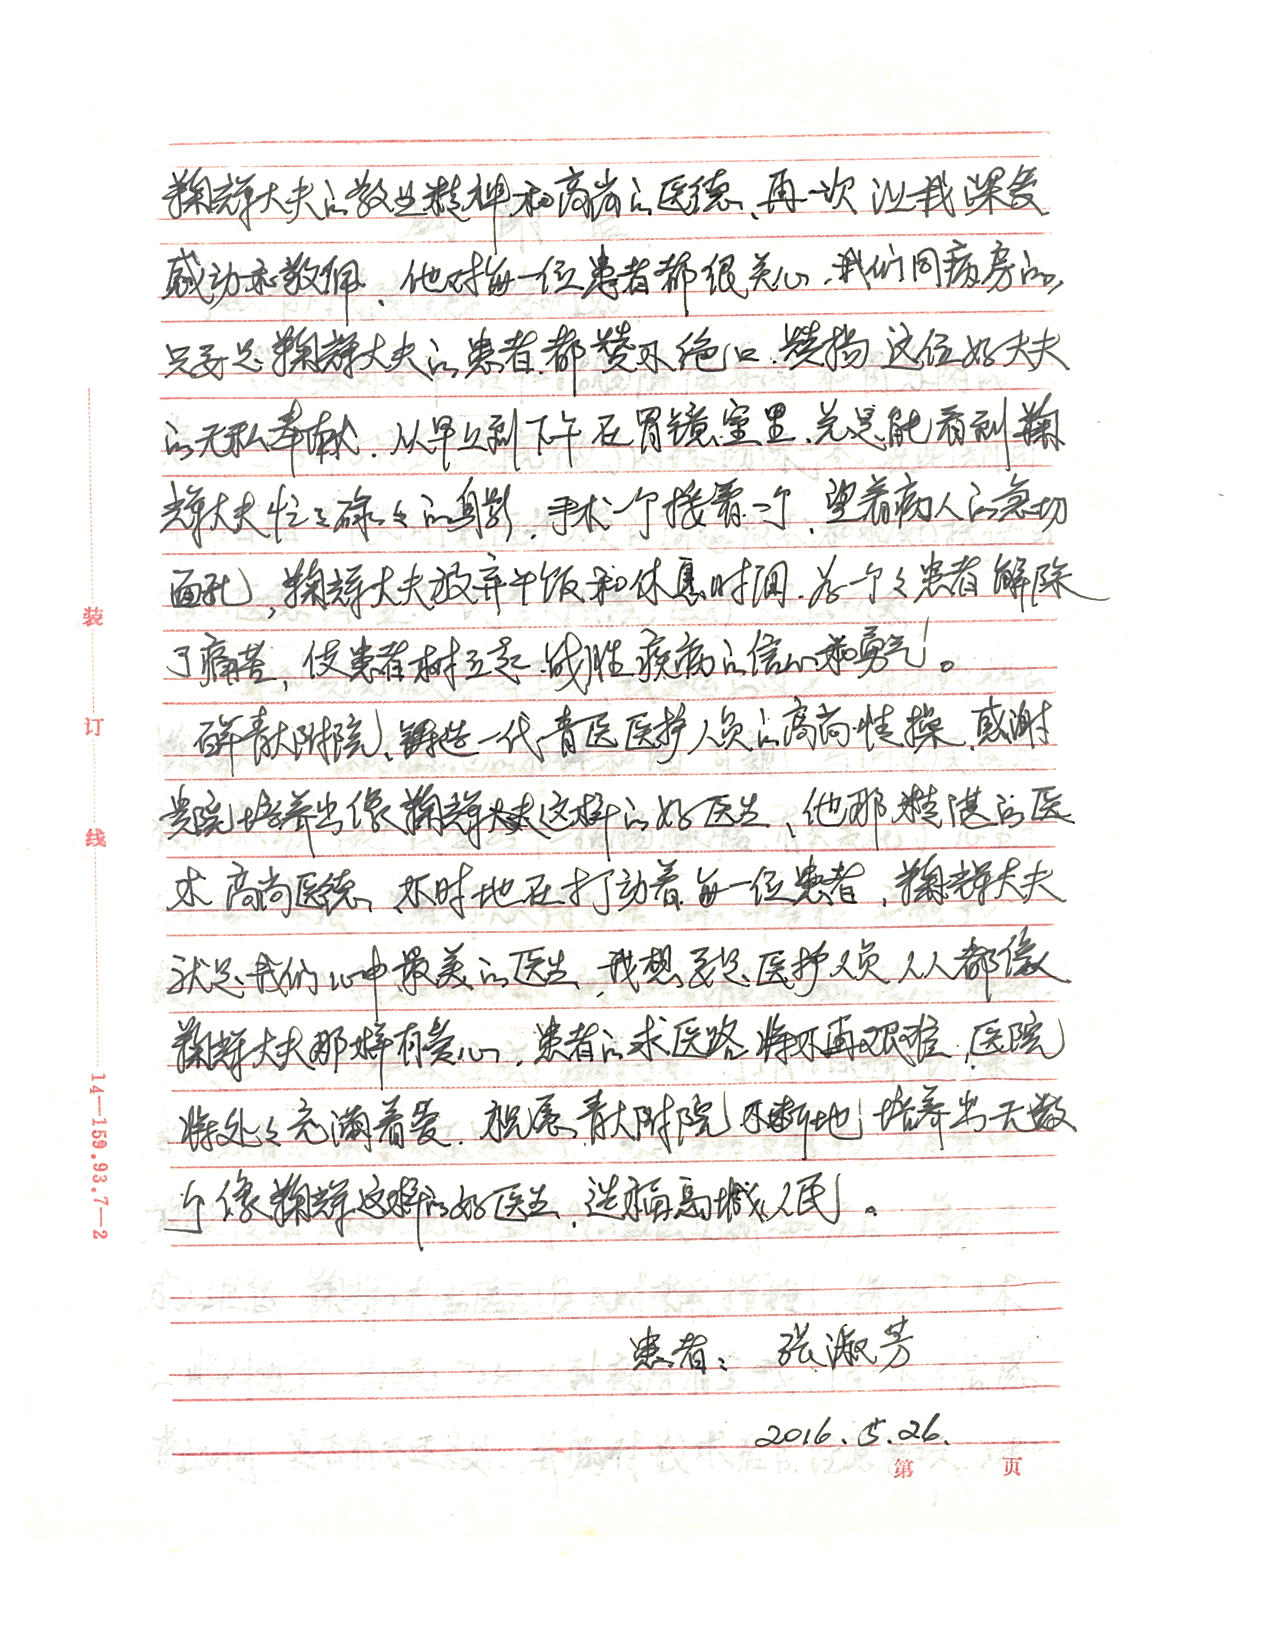 鞠辉大夫的敬业精神和高尚的医德、再一次让我深受
感动和敬佩、他对每一位患者都很关心、我们同病房的,
只要是鞠辉大夫的患者、都赞不绝口、赞扬这位好大夫
的无私奉献、从早上到下午在胃镜室里、总是能看到鞠
辉大夫忙忙碌碌的身影、手术一个接着一个、望着病人的急切
面孔, 鞠辉大夫放弃午饭和休息时间、为个个患者解除
了痛苦, 使患者树立起战胜疾病的信心和勇气。
百年青大附院、铸造一代青医医护人员的高尚情操、感谢
贵院培养出像鞠辉大夫这样的好医生、他那精湛的医
术高尚医德、不时地在打动着每一位患者, 鞠辉大夫
就是我们心中最美的医生、我想要是医护人员人人都像
鞠辉大夫那样有爱心、患者的求医路将不再艰难、医院
将处处充满着爱、祝愿青大附院不断地培养出无数
个像鞠辉这样的好医生、造福岛城人民。
患者: 张淑芳
2016.5.26.
第 页
装
订
线
14—159.93.7—2